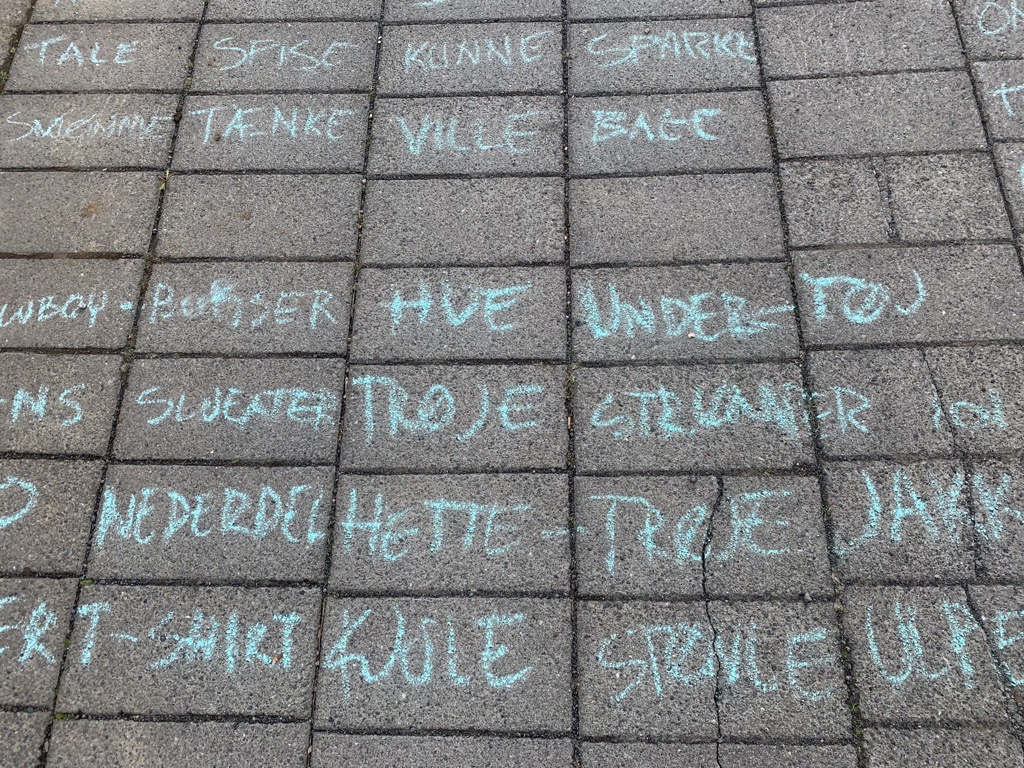 TALE SPISE KUNNE SPARKE
SVØMME TÆNKE VILLE BAGE
WBOY- BUKSER HUE UNDER- TØJ
NS SWEATER TRØJE STRØMPER
NEDERDEL HETTE- TRØJE JAKK
ERT T-SHIRT KJOLE